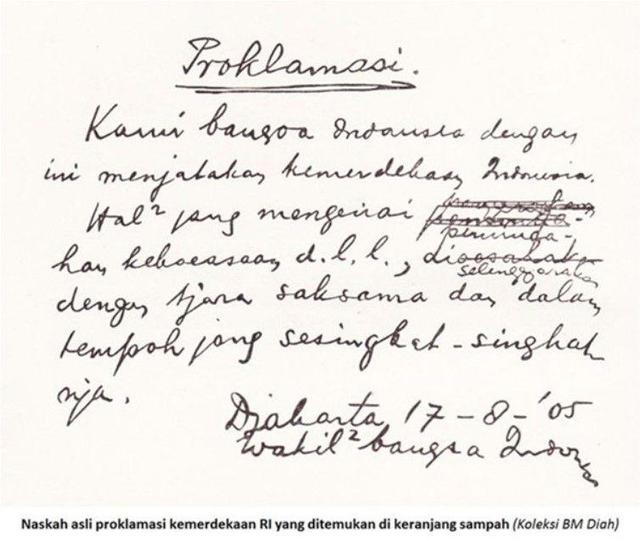 Proklamasi.
Kami bangsa Indonesia dengan
ini menjatakan kemerdekaan Indonesia.
Hal² jang mengenai peminda-
han kekoeasaan d.l.l., dioesahakan selenggarakan
dengan tjara saksama dan dalam
tempoh jang sesingkat-singkat
nja.
Djakarta 17 - 8 - '05
Wakil² bangsa Indonesia
Naskah asli proklamasi kemerdekaan RI yang ditemukan di keranjang sampah (Koleksi BM Diah)